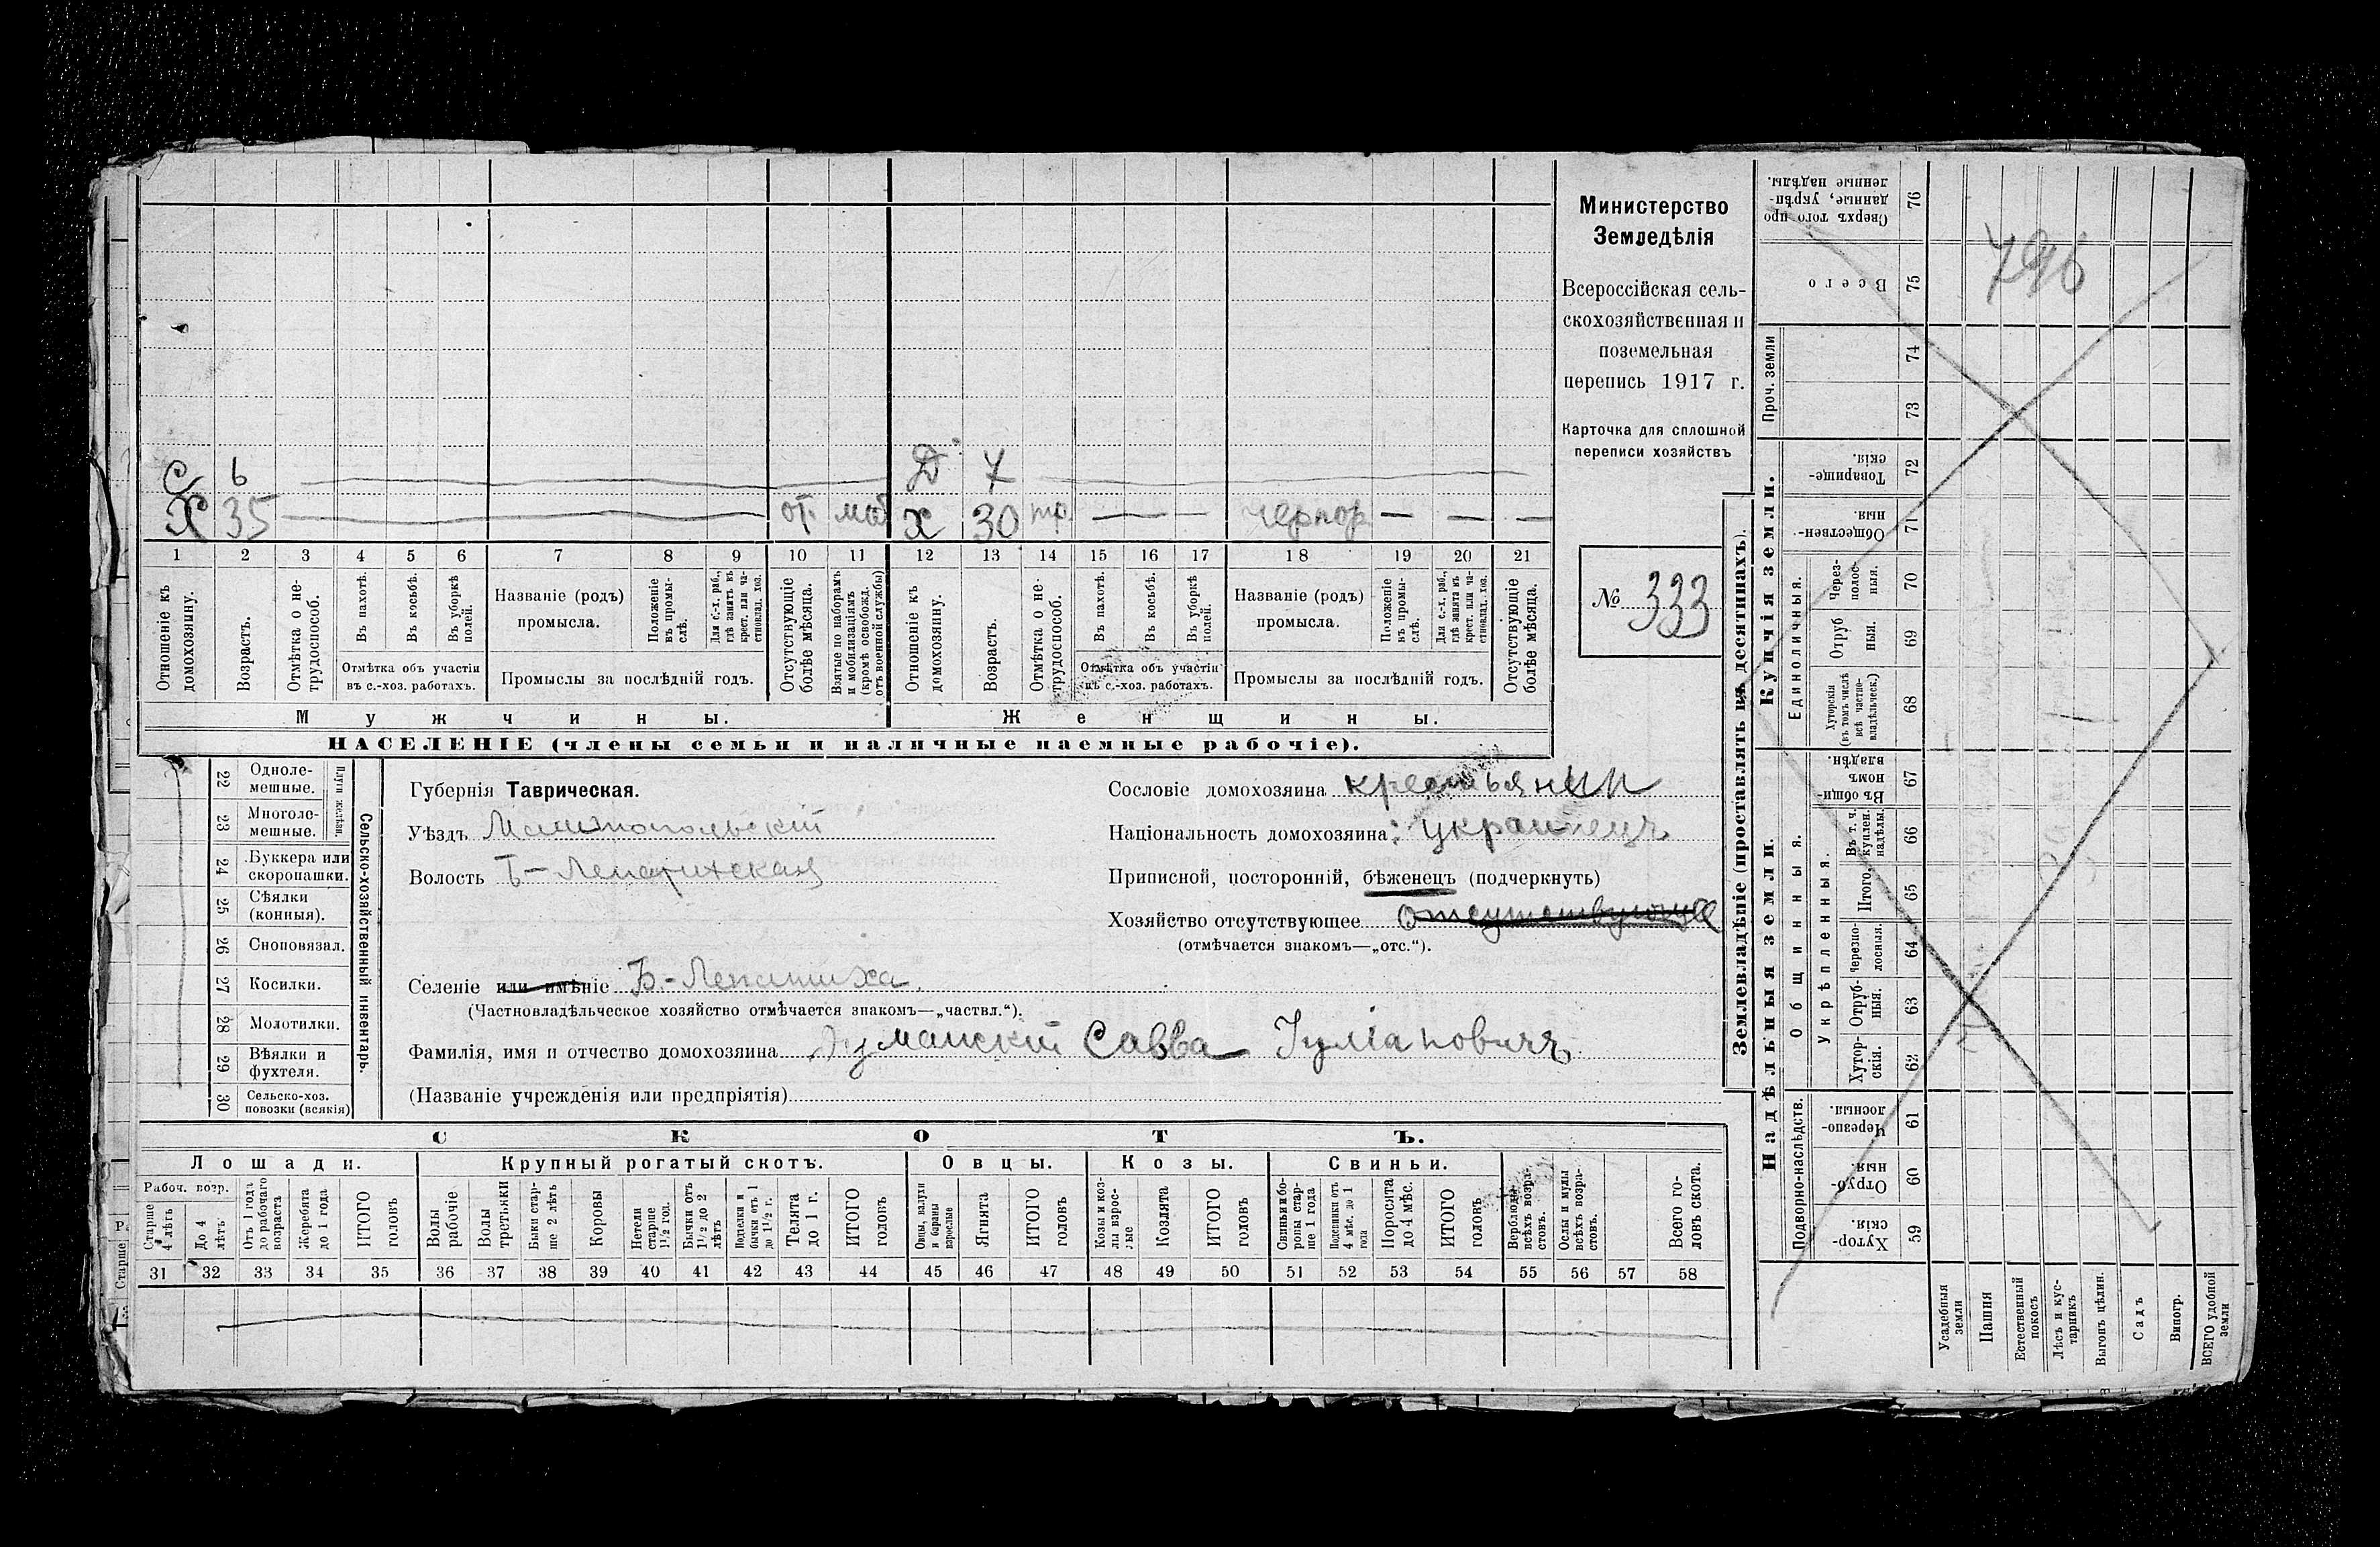 Министерство
Земледѣлія
Всероссійская сель-
скохозяйственная и
поземельная
перепись 1917 г.
Карточка для сплошной
переписи хозяйствъ
№ 333
С 6 Д 7
Х 35 от. моб Х 30 тр. чернор.
1 2 3 4 5 6 7 8 9 10 11 12 13 14 15 16 17 18 19 20 21
Отношеніе къ домохозяину.
Возрастъ.
Отмѣтка о не-трудоспособ.
Въ пахотѣ.
Въ косьбѣ.
Въ уборкѣ полей.
Отмѣтка объ участіи въ с.-хоз. работахъ.
Названіе (родъ) промысла.
Положеніе въ промы-слѣ.
Для с.-х. раб., гдѣ занятъ въ крест. или ча-стновлад. хоз.
Промыслы за послѣдній годъ.
Отсутствующіе болѣе мѣсяца.
Взятые по наборамъ и мобилизаціямъ (кромѣ освобожд. отъ военной службы)
Отношеніе къ домохозяину.
Возрастъ.
Отмѣтка о не-трудоспособ.
Въ пахотѣ.
Въ косьбѣ.
Въ уборкѣ полей.
Отмѣтка объ участіи въ с.-хоз. работахъ.
Названіе (родъ) промысла.
Положеніе въ промы-слѣ.
Для с.-х. раб., гдѣ занята въ крест. или ча-стновлад. хоз.
Промыслы за послѣдній годъ.
Отсутствующіе болѣе мѣсяца.
Мужчины. Женщины.
НАСЕЛЕНІЕ (члены семьи и наличные наемные рабочіе).
Сельско-хозяйственный инвентарь.
Плуги желѣзн.
22 Одноле-мешные.
23 Многоле-мешные.
24 Буккера или скоропашки.
25 Сѣялки (конныя).
26 Сноповязал.
27 Косилки.
28 Молотилки.
29 Вѣялки и фухтеля.
30 Сельско-хоз. повозки (всякія)
Губернія Таврическая.
Уѣздъ Мелитопольскій
Волость Б-Лепатихская
Селеніе или имѣніе Б.-Лепатиха.
(Частновладѣльческое хозяйство отмѣчается знакомъ—„частвл.“).
Фамилія, имя и отчество домохозяина Савва Іуліановичъ
(Названіе учрежденія или предпріятія)
Сословіе домохозяина крестьянин
Національность домохозяина: украинецъ
Приписной, посторонній, бѣженецъ (подчеркнуть)
Хозяйство отсутствующее отсутствующее
(отмѣчается знакомъ—„отс.“).
СКОТЪ.
Лошади. Крупный рогатый скотъ. Овцы. Козы. Свиньи.
Рабоч. возр.
Старше 4 лѣтъ
До 4 лѣтъ
Отъ 1 года до рабочаго возраста
Жеребята до 1 года
ИТОГО головъ
Волы рабочіе
Волы третьяки
Быки стар-ше 2 лѣтъ
Коровы
Нетели старше 1½ год.
Бычки отъ 1½ до 2 лѣтъ
Подтелки и бычки отъ 1 до 1½ г.
Телята до 1 г.
ИТОГО головъ
Овцы, валухи и бараны взрослые
Ягнята
ИТОГО головъ
Козы и коз-лы взрос-лые
Козлята
ИТОГО головъ
Свиньи и бо-ровы стар-ше 1 года
Подсвинки отъ 4 мѣс. до 1 года
Поросята до 4 мѣс.
ИТОГО головъ
Верблюды всѣхъ возра-стовъ.
Ослы и мулы всѣхъ возра-стовъ.
Всего го-ловъ скота.
31 32 33 34 35 36 37 38 39 40 41 42 43 44 45 46 47 48 49 50 51 52 53 54 55 56 57 58
Землевладѣніе (проставлять въ десятинахъ).
Купчія земли.
Надѣльныя земли.
Сверхъ того про-данные, укрѣп-ленные надѣлы. 76
Всего 75
Проч. земли 74
73
Товарище-скія. 72
Обществен-ныя. 71
Единоличныя.
Черезполос-ныя. 70
Отруб-ныя. 69
Хуторскія (въ томъ числѣ всѣ частно-владѣльческ.) 68
Общинныя.
Въ общи-номъ владѣн. 67
Укрѣпленныя.
Въ т. ч. куплен. надѣлы. 66
Итого. 65
Черезпо-лосныя. 64
Отруб-ныя. 63
Хутор-скія. 62
Подворно-наслѣдств.
Черезпо-лосныя. 61
Отруб-ныя. 60
Хутор-скія. 59
Усадебныя земли
Пашня
Естественный покосъ
Лѣсъ и кус-тарникъ
Выгонъ цѣлин.
Садъ
Виногр.
ВСЕГО удобной земли
796